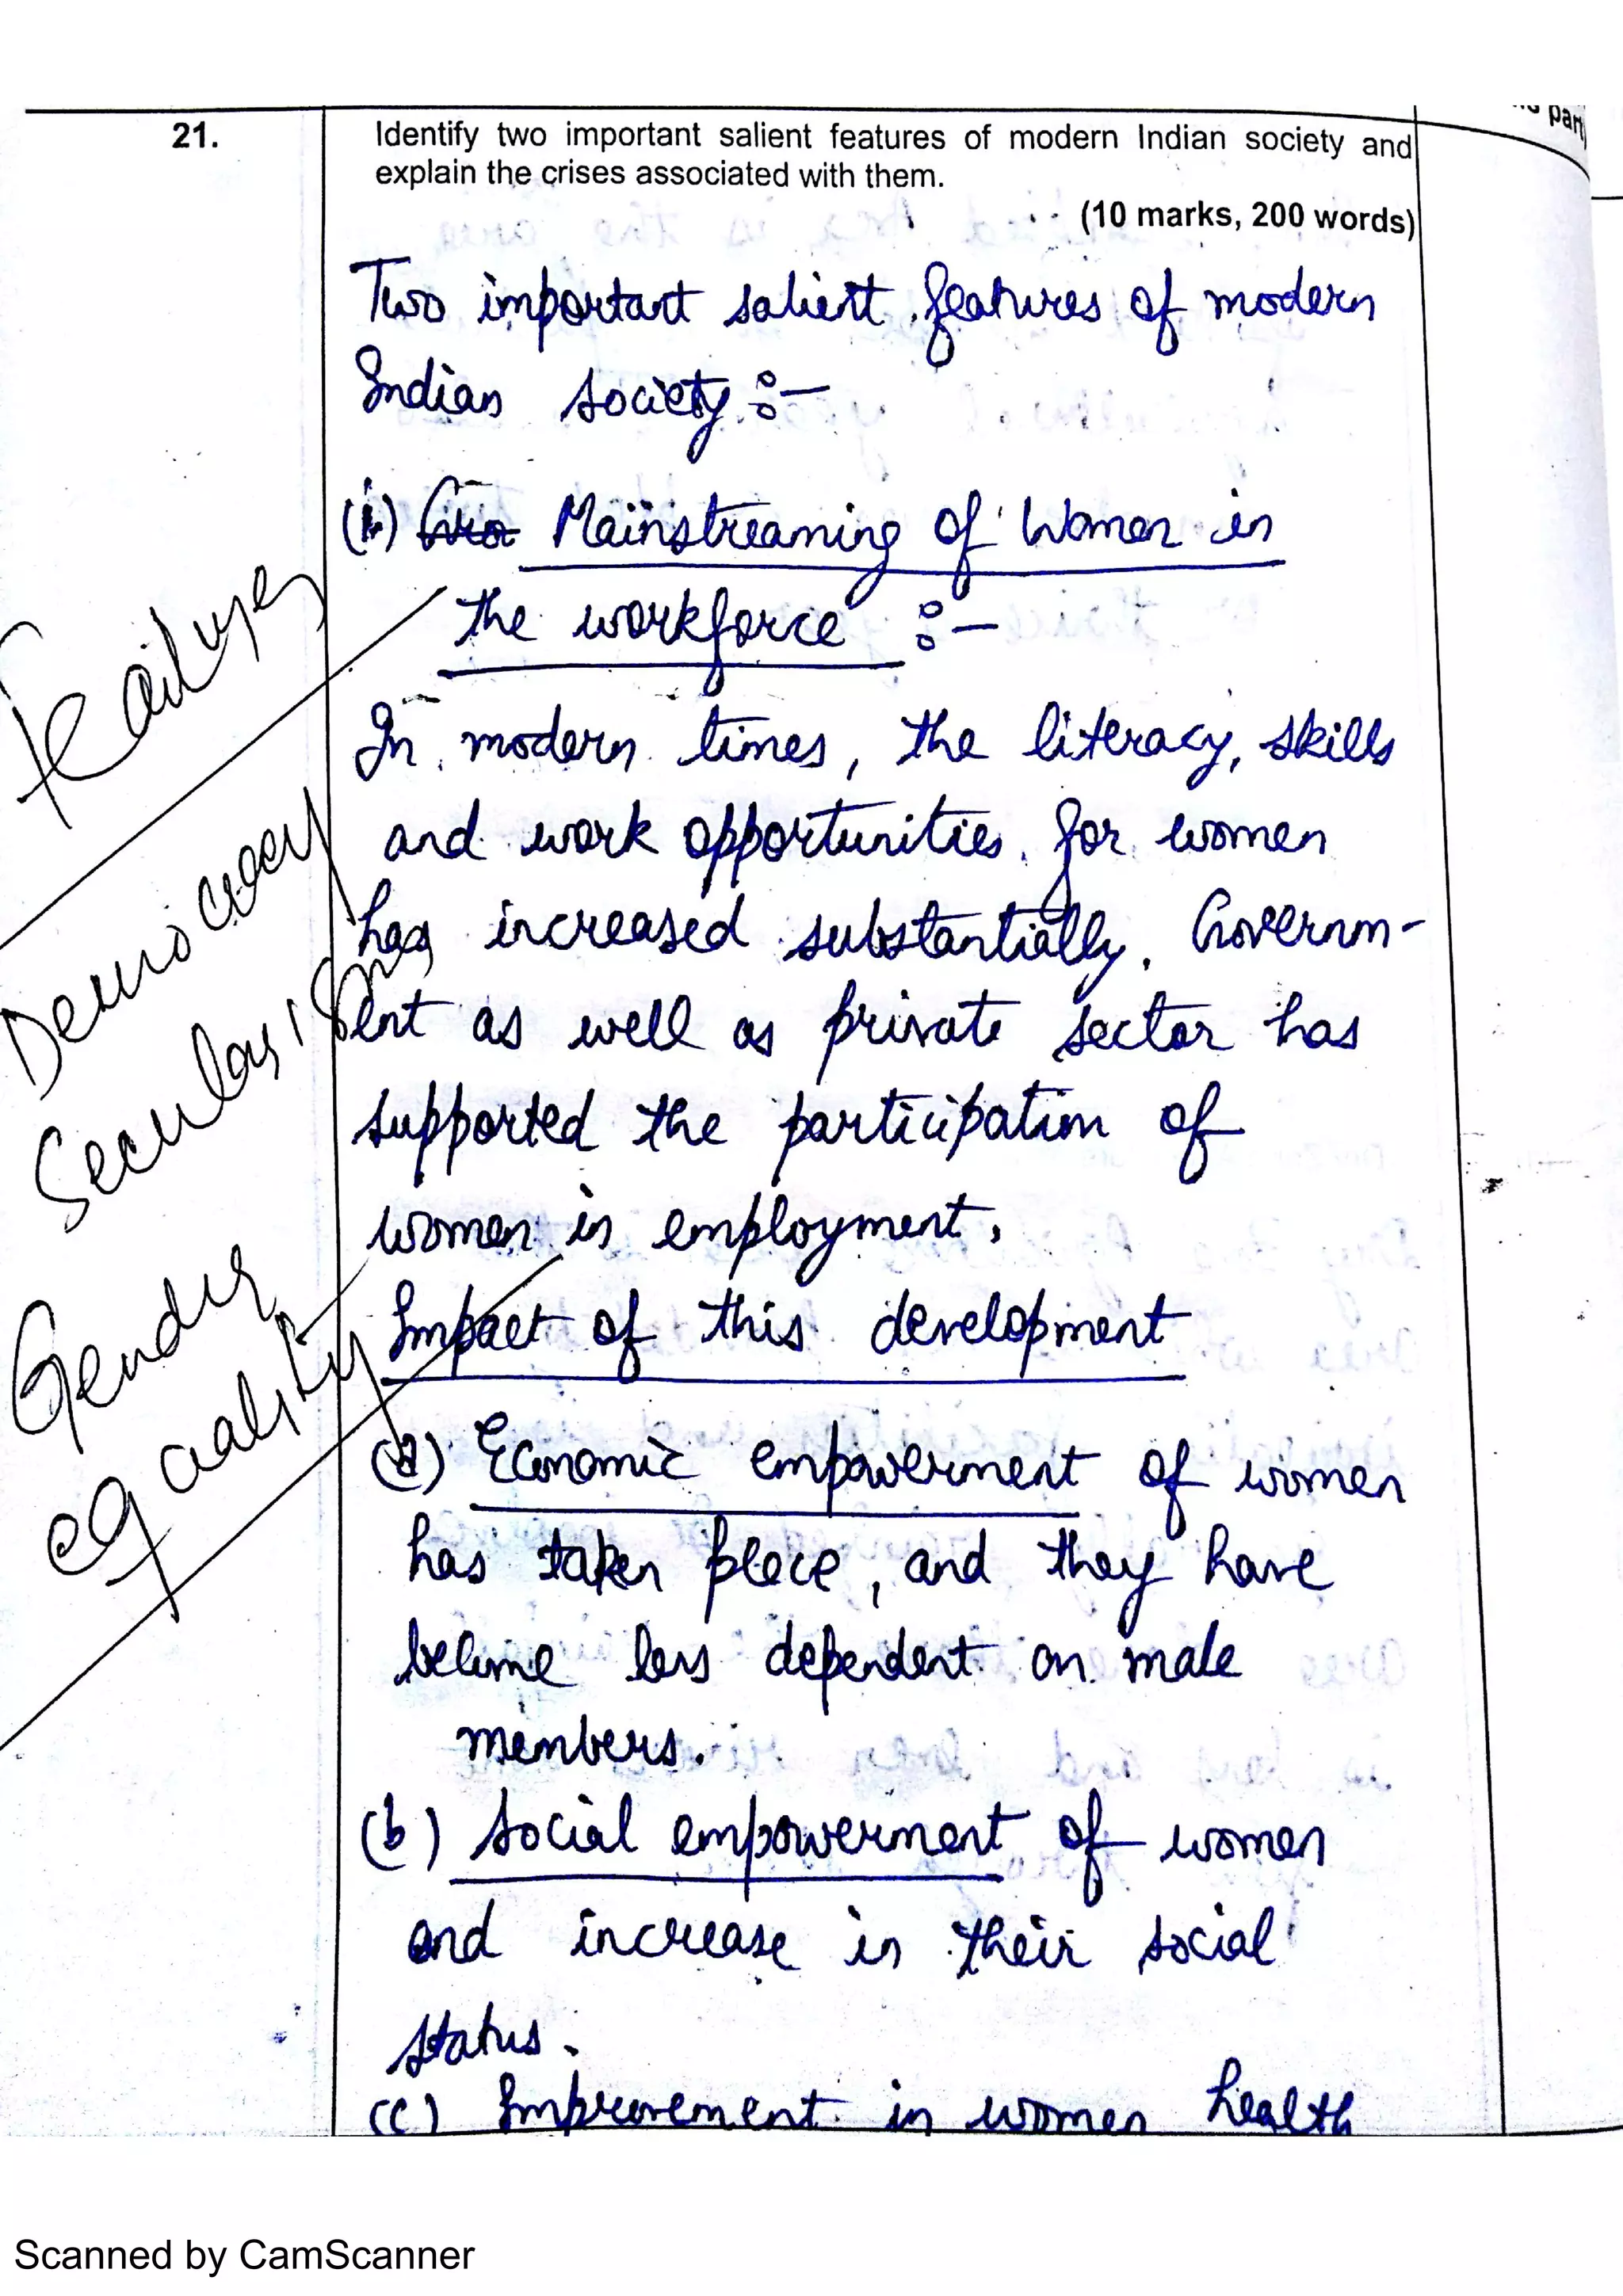 21.
Identify two important salient features of modern Indian society and
explain the crises associated with them.
(10 marks, 200 words)
Two important salient features of modern
Indian society :-
(i) Mainstreaming of Women in
the workforce :-
In modern times, the literacy, skills
and work opportunities for women
has increased substantially. Governm-
ent as well as private sector has
supported the participation of
women in employment.
Impact of this development
(a) Economic empowerment of women
has taken place, and they have
become less dependent on male
members.
(b) Social empowerment of women
and increase in their social
status.
(c) Improvement in women health
Democracy
Secularism
Gender
equality
Scanned by CamScanner